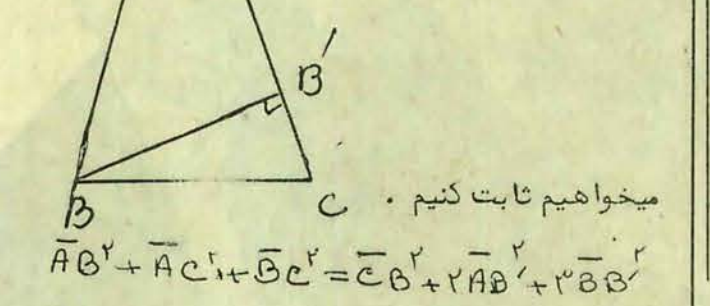 B′
B
C
میخواهیم ثابت کنیم .
A̅B² + A̅C² + B̅C² = C̅B′² + ۲A̅B′² + ۳B̅B′²